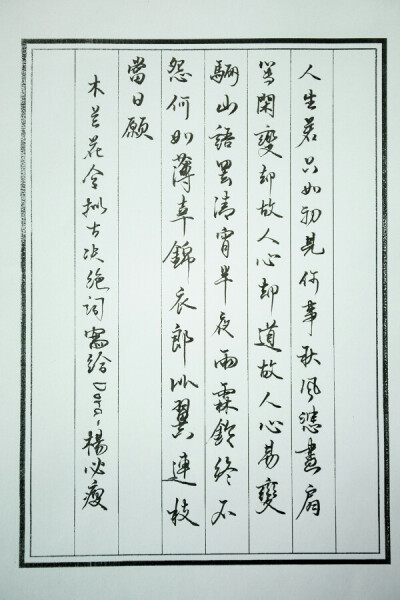 人生若只如初見何事秋風悲畫扇
等閑變却故人心却道故人心易變
驪山語罷清宵半夜雨霖鈴終不
怨何如薄幸錦衣郎比翼連枝
當日願
木兰花令擬古决絕詞寫給Dora-楊必瘦